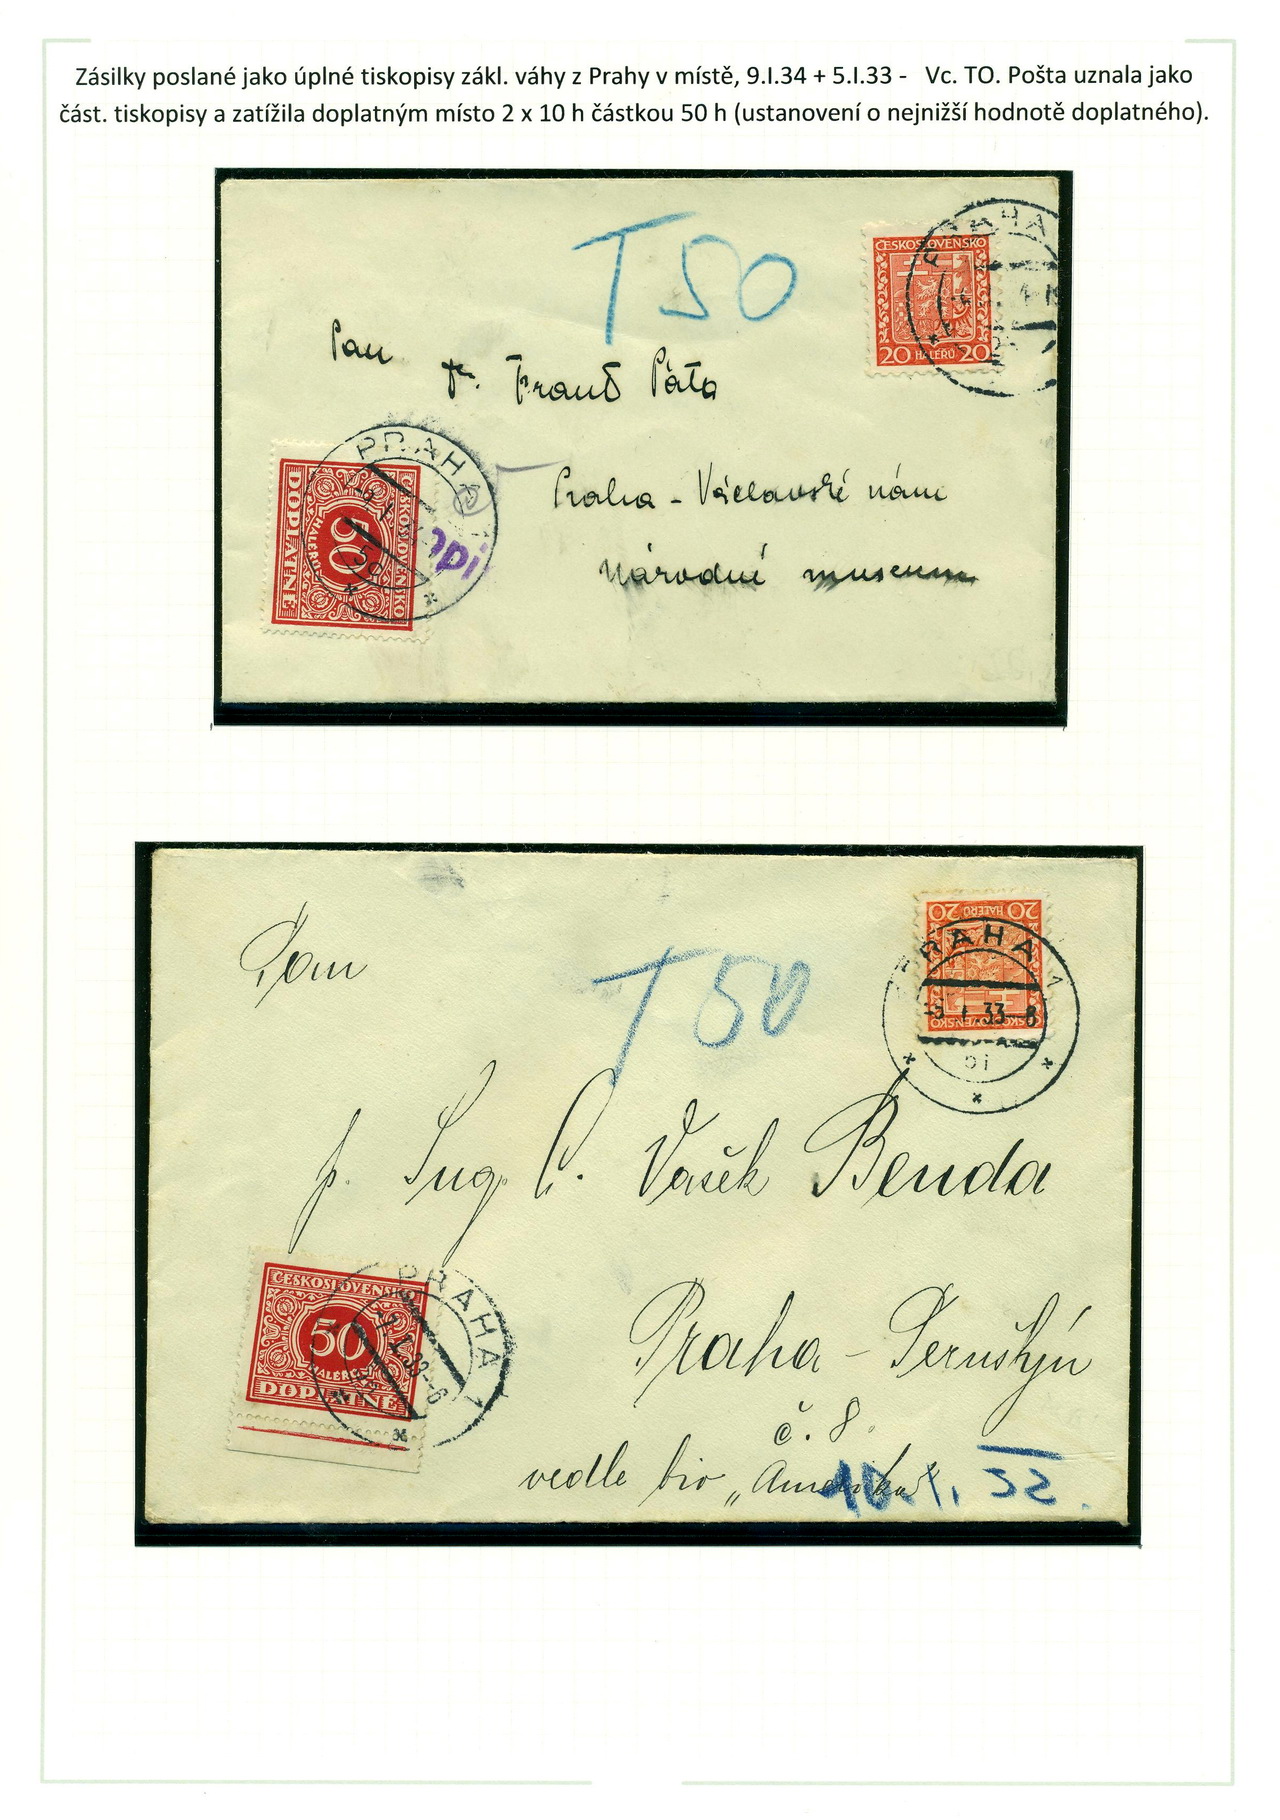 Zásilky poslané jako úplné tiskopisy zákl. váhy z Prahy v místě, 9.I.34 + 5.I.33 - Vc. TO. Pošta uznala jako
část. tiskopisy a zatížila doplatným místo 2 x 10 h částkou 50 h (ustanovení o nejnižší hodnotě doplatného).
T 50
PRAHA
ČESKOSLOVENSKO
20 HALÉŘŮ 20
Pan
Dr. Frant Páta
PRAHA
ČESKOSLOVENSKO
50
HALÉŘŮ
DOPLATNÉ
Praha - Václavské nám
Národní museum
20 HALÉŘŮ 20
ČESKOSLOVENSKO
PRAHA 1
-5.I.33-8
Pan
T 50
p. Ing. C. Vašek Benda
ČESKOSLOVENSKO
50
HALÉŘŮ
DOPLATNÉ
PRAHA 1
-7.I.33-6
Praha - Perштýn
č. 8.
vedle bio „Amerika"
10.I.